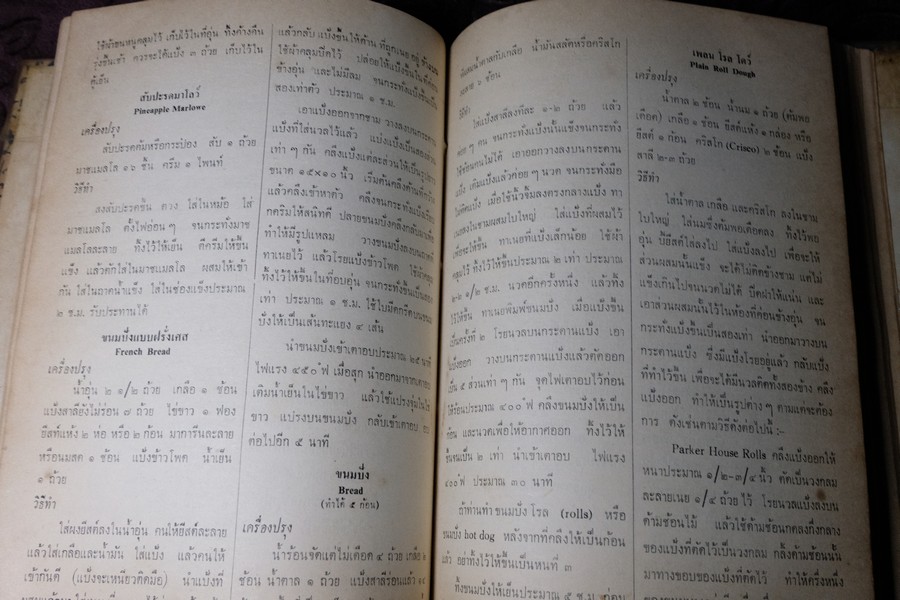 ใช้ผ้าขนหนูคลุมไว้ เก็บไว้ในที่อุ่น ทิ้งค้างคืน
รุ่งขึ้นเช้า ควรจะได้แป้ง ๓ ถ้วย เก็บไว้ใน
ตู้เย็น
สับปะรดมาโลว์
Pineapple Marlowe
เครื่องปรุง
สับปะรดคั้มหรือกระป๋อง สับ ๑ ถ้วย
มาชแมลโล ๑๖ ชิ้น ครีม ๑ ไพน์ท์
วิธีทำ
สงสับปะรดขึ้น ตวง ใส่ในหม้อ ใส่
มาชแมลโล ตั้งไฟอ่อน ๆ จนกระทั่งมาช
แมลโลละลาย ทิ้งไว้ให้เย็น ตีครีมให้ขึ้น
แข็ง แล้วตักใส่ในมาชแมลโล ผสมให้เข้า
กัน ใส่ในถาดน้ำแข็ง ใส่ในช่องแข็งประมาณ
๒ ช.ม. รับประทานได้
ขนมปังแบบฝรั่งเศส
French Bread
เครื่องปรุง
น้ำอุ่น ๒ ๑/๒ ถ้วย เกลือ ๑ ช้อน
แป้งสาลียังไม่ร่อน ๘ ถ้วย ไข่ขาว ๑ ฟอง
ยีสท์แห้ง ๒ ห่อ หรือ ๒ ก้อน มาการีนละลาย
หรือนมสด ๑ ช้อน แป้งข้าวโพด น้ำเย็น
๑ ถ้วย
วิธีทำ
ใส่ผงยีสต์ลงในน้ำอุ่น คนให้ยีสต์ละลาย
แล้วใส่เกลือและน้ำมัน ใส่แป้ง แล้วคนให้
เข้ากันดี (แป้งจะเหนียวติดมือ) นำแป้งที่
แล้วกลับ แป้งขึ้นให้ด้าน ที่ถูกเนย อยู่ ข้างบน
ใช้ผ้าคลุมปิดไว้ ปล่อยให้แป้งขึ้นในที่ค่อน
ข้างอุ่น และไม่มีลม จนกระทั่งแป้งขึ้นเป็น
สองเท่าตัว ประมาณ ๑ ช.ม.
เอาแป้งออกจากชาม วางลงบนกระดาน
แป้งที่ใส่นวลไว้แล้ว แบ่งแป้งเป็นสองส่วน
เท่า ๆ กัน คลึงแป้งแต่ละส่วนให้เป็นรูปยาว
ขนาด ๑๕×๑๐ นิ้ว เริ่มต้นคลึงด้านที่กว้าง
แล้วคลึงเข้าหาตัว คลึงจนกระทั่งแป้งเรียบ
กดริมให้สนิทดี ปลายขนมปังคลึงกลับมาเพื่อ
ทำให้มีรูปแหลม วางขนมปังลงบนถาดที่
ทาเนยไว้ แล้วโรยแป้งข้าวโพด ใช้ผ้าคลุม
ทิ้งไว้ให้ขึ้นในที่อบอุ่น จนกระทั่งขึ้นเป็นสอง
เท่า ประมาณ ๑ ช.ม. ใช้ใบมีดกรีดบนขนม
ปังให้เป็นเส้นทะแยง ๔ เส้น
นำขนมปังเข้าเตาอบประมาณ ๒๕ นาที
ไฟแรง ๔๕๐°ฟ เมื่อสุก นำออกมาจากเตาอบ
เติมน้ำเย็นในไข่ขาว แล้วใช้แปรงชุบในไข่
ขาว แปรงบนขนมปัง กลับเข้าเตาอบ อบ
ต่อไปอีก ๕ นาที
ขนมปัง
Bread
(ทำได้ ๕ ก้อน)
เครื่องปรุง
น้ำร้อนจัดแต่ไม่เดือด ๔ ถ้วย เกลือ ๒
ช้อน น้ำตาล ๑ ถ้วย แป้งสาลีร่อนแล้ว ๑๔
ผสมน้ำตาลกับเกลือ น้ำมันสลัดหรือคริสโก
ละลาย ๖ ช้อน
วิธีทำ
ใส่แป้งสาลีลงทีละ ๑-๒ ถ้วย แล้ว
ค่อย ๆ คน จนกระทั่งแป้งนั้นแข็งจนกระทั่ง
ใช้ช้อนคนไม่ได้ เอาออกวางลงบนกระดาน
แป้ง เติมแป้งแล้วค่อย ๆ นวด จนกระทั่งมือ
ไม่ติดแป้ง เมื่อใช้นิ้วจิ้มลงตรงกลางแป้ง ทา
เนยลงในชามผสมใบใหญ่ ใส่แป้งที่ผสมไว้
เพื่อจะให้ขึ้น ทาเนยที่แป้งเล็กน้อย ใช้ผ้า
คลุมไว้ ทิ้งไว้ให้ขึ้นประมาณ ๒ เท่า ประมาณ
๑-๑ ๑/๒ ช.ม. นวดอีกครั้งหนึ่ง แล้วทิ้ง
ไว้ให้ขึ้น ทาเนยพิมพ์ขนมปัง เมื่อแป้งขึ้น
เป็นครั้งที่ ๒ โรยนวลบนกระดานแป้ง เอา
แป้งออก วางบนกระดานแป้งแล้วตัดออก
เป็น ๕ ส่วนเท่า ๆ กัน จุดไฟเตาอบไว้ก่อน
ให้ร้อนประมาณ ๔๐๐°ฟ คลึงขนมปังให้เป็น
ก้อน และนวดเพื่อให้อากาศออก ทิ้งไว้ให้
ขึ้นจนเป็น ๒ เท่า นำเข้าเตาอบ ไฟแรง
๔๐๐°ฟ ประมาณ ๓๐ นาที
ถ้าท่านทำ ขนมปัง โรล (rolls) หรือ
ขนมปัง hot dog หลังจากที่คลึงให้เป็นก้อน
แล้ว อย่าทิ้งไว้ให้ขึ้นเป็นหนที่ ๓
ทิ้งขนมปังให้เย็นประมาณ ๕ ช.ม. ก่อน
เพลน โรล โดว์
Plain Roll Dough
เครื่องปรุง
น้ำตาล ๒ ช้อน น้ำนม ๑ ถ้วย (ต้มพอ
เดือด) เกลือ ๑ ช้อน ยีสต์แห้ง ๑ กล่อง หรือ
ยีสต์ ๑ ก้อน คริสโก (Crisco) ๒ ช้อน แป้ง
สาลี ๒-๓ ถ้วย
วิธีทำ
ใส่น้ำตาล เกลือ และคริสโก ลงในชาม
ใบใหญ่ ใส่นมซึ่งต้มพอเดือดลง ทิ้งไว้พอ
อุ่น บี้ยีสต์ใส่ลงไป ใส่แป้งลงไป เพื่อจะให้
ส่วนผสมนั้นแข็ง จะได้ไม่ติดข้างชาม แต่ไม่
แข็งเกินไปจนนวดไม่ได้ ปิดฝาให้แน่น และ
เอาส่วนผสมนั้นไว้ในห้องที่ค่อนข้างอุ่น จน
กระทั่งแป้งขึ้นเป็นสองเท่า นำออกมาวางบน
กระดานแป้ง ซึ่งมีแป้งโรยอยู่แล้ว กลับแป้ง
ที่ทำไว้ขึ้น เพื่อจะได้มีนวลติดทั้งสองข้าง คลึง
แป้งออก ทำให้เป็นรูปต่าง ๆ ตามแต่จะต้อง
การ ดังเช่นตามวิธีดังต่อไปนี้ :–
Parker House Rolls คลึงแป้งออกให้
หนาประมาณ ๑/๒-๓/๔ นิ้ว ตัดเป็นวงกลม
ละลายเนย ๑/๔ ถ้วย ไว้ โรยนวลแป้งลงบน
ด้ามช้อนไม้ แล้วใช้ด้ามช้อนกดลงกึ่งกลาง
ของแป้งที่ตัดไว้เป็นวงกลม กลิ้งด้ามช้อนนั้น
มาทางขอบของแป้งที่ตัดไว้ ทำให้ครึ่งหนึ่ง